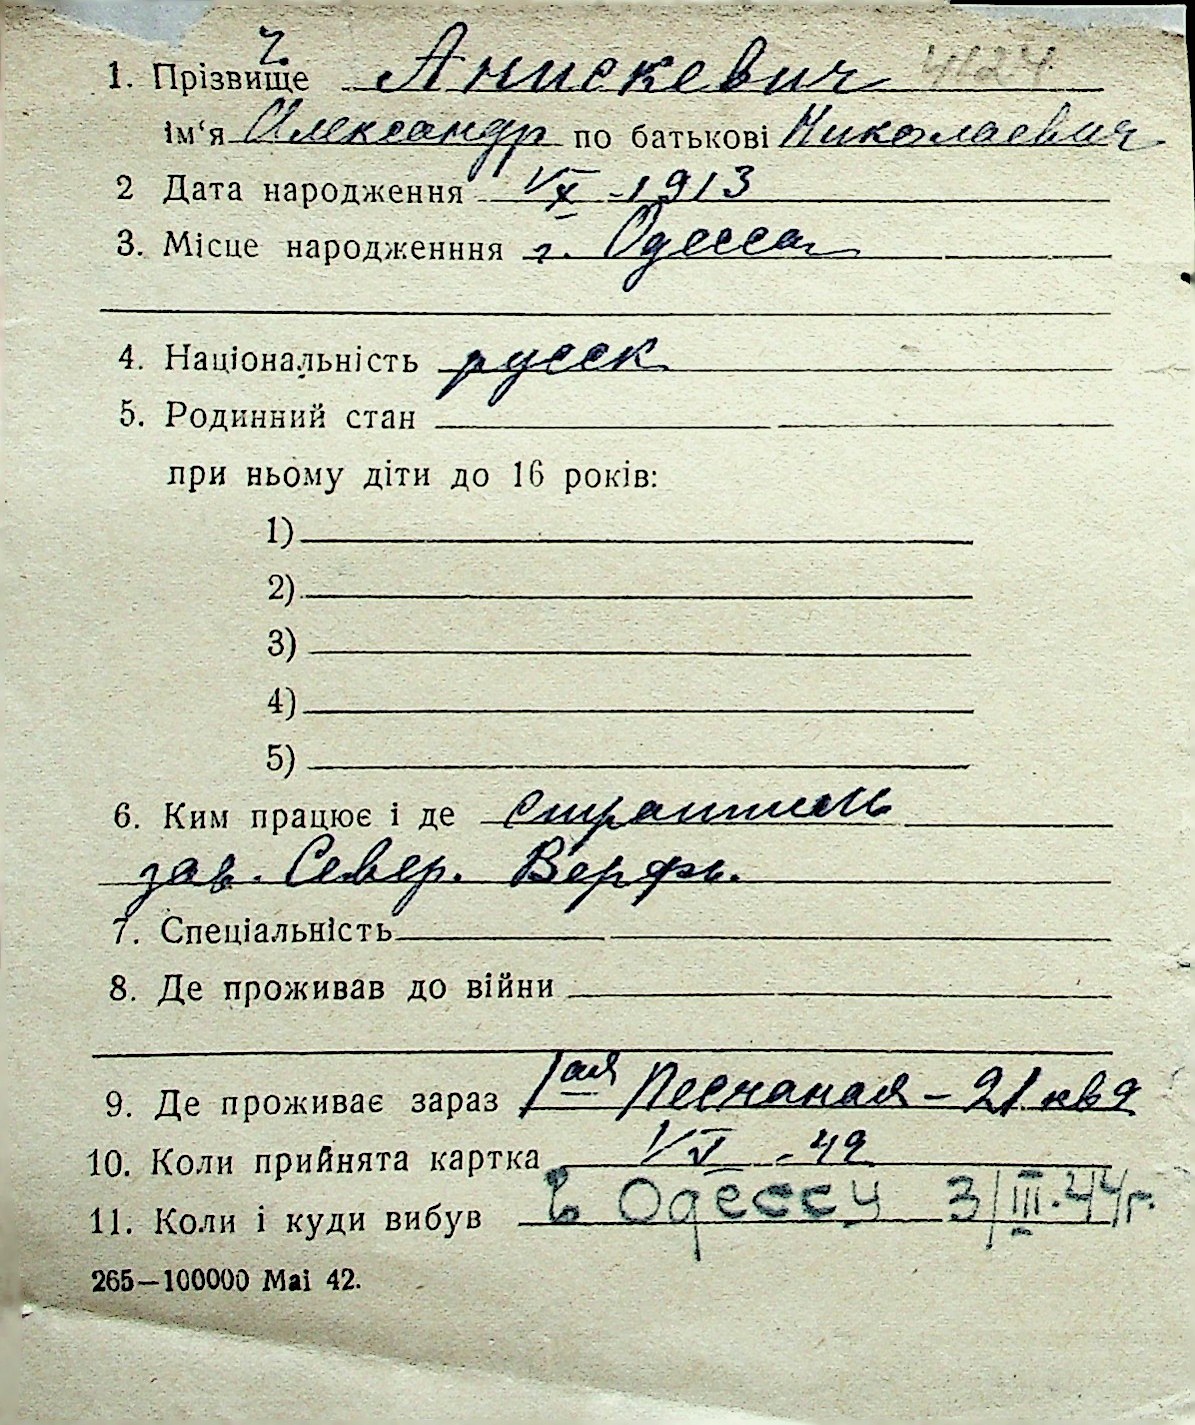 ч.
1. Прізвище Анискевич 4124
ім‘я Александр по батькові Николаевич
2 Дата народження X -1913
3. Місце народженння г. Одесса
4. Національність русск
5. Родинний стан
при ньому діти до 16 років:
1)
2)
3)
4)
5)
6. Ким працює і де
зав. Север. Верфь.
7. Спеціальність
8. Де проживав до війни
9. Де проживає зараз 1ая Песчаная – 21 кв 9
10. Коли прийнята картка
11. Коли і куди вибув в Одессу 3/III.44г.
265—100000 Mai 42.